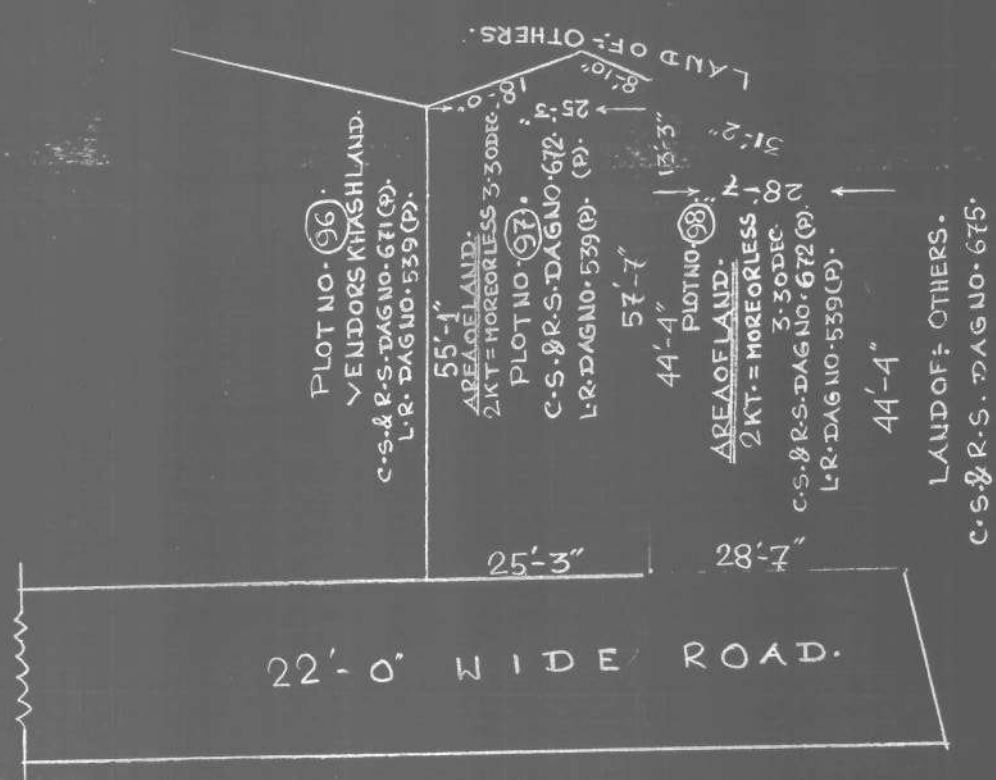 LAND OF:- OTHERS.
8'-10"
18'-0"
25'-3"
31'-2"
13'-3"
28'-7"
PLOT NO. 96.
VENDORS KHASH LAND.
C.S. & R.S. DAG NO. 671 (P).
L.R. DAG NO. 539 (P).
55'-1"
AREA OF LAND.
2 KT = MORE OR LESS 3.30 DEC.
PLOT NO. 97.
C.S. & R.S. DAG NO. 672. (P).
L.R. DAG NO. 539 (P).
57'-7"
44'-4"
PLOT NO. 98.
AREA OF LAND.
2 KT. = MORE OR LESS.
3.30 DEC.
C.S. & R.S. DAG NO. 672 (P).
L.R. DAG NO. 539 (P).
44'-4"
LAND OF:- OTHERS.
C.S. & R.S. DAG NO. 675.
25'-3"
28'-7"
22'-0" WIDE ROAD.